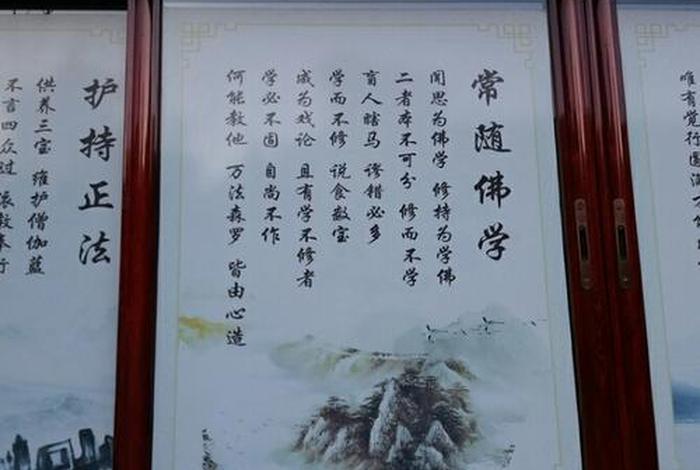 唯有觉行圆满
常随佛学
闻思为佛学 修持为学佛
二者本不可分 修而不学
盲人瞎马 谬错必多
学而不修 说食数宝
成为戏论 且有学不修者
学必不固 自尚不作
何能教他 万法森罗 皆由心造
护持正法
供养三宝 维护僧伽蓝
不言四众过 依教奉行